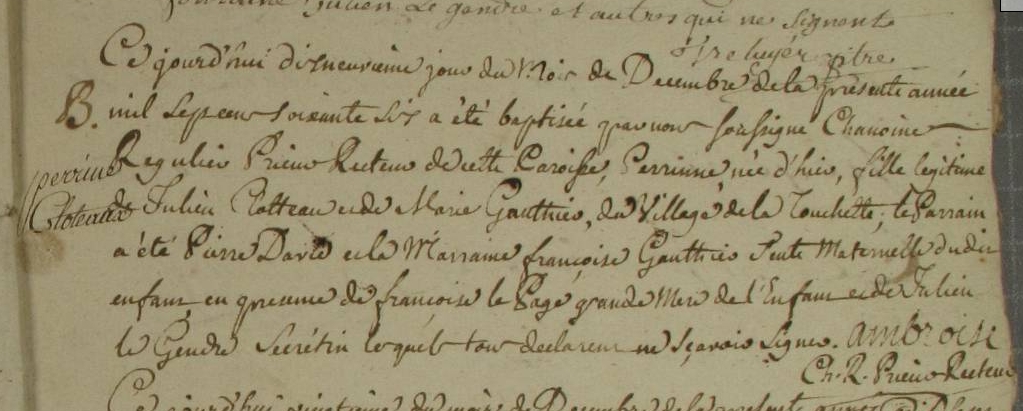 Julien Le gendre et autres qui ne signent
Ce jourd'hui disneuvieme jour du Mois de Decembre de la presente année
B. mil sept cens soixante six a été baptisée par nous soussigné Chanoine
perrine Regulier Prieur Recteur de cette Paroisse, Perrinne née d'hier, fille legitime
de Julien Cotteau et de Marie Gauthier, du Village de la Touchette; le Parrain
a été Pierre David et la Marraine françoise Gauthier tente Maternelle dudit
enfant en presence de françoise le Pagé grande Mere de l'Enfant et de Julien
le Gendre Secrétin lesquels tous declarent ne sçavoir signer. ambroise
Ch. R. Prieur Recteur
Ce jourd'hui vingtieme du mois de Decembre de la presente année